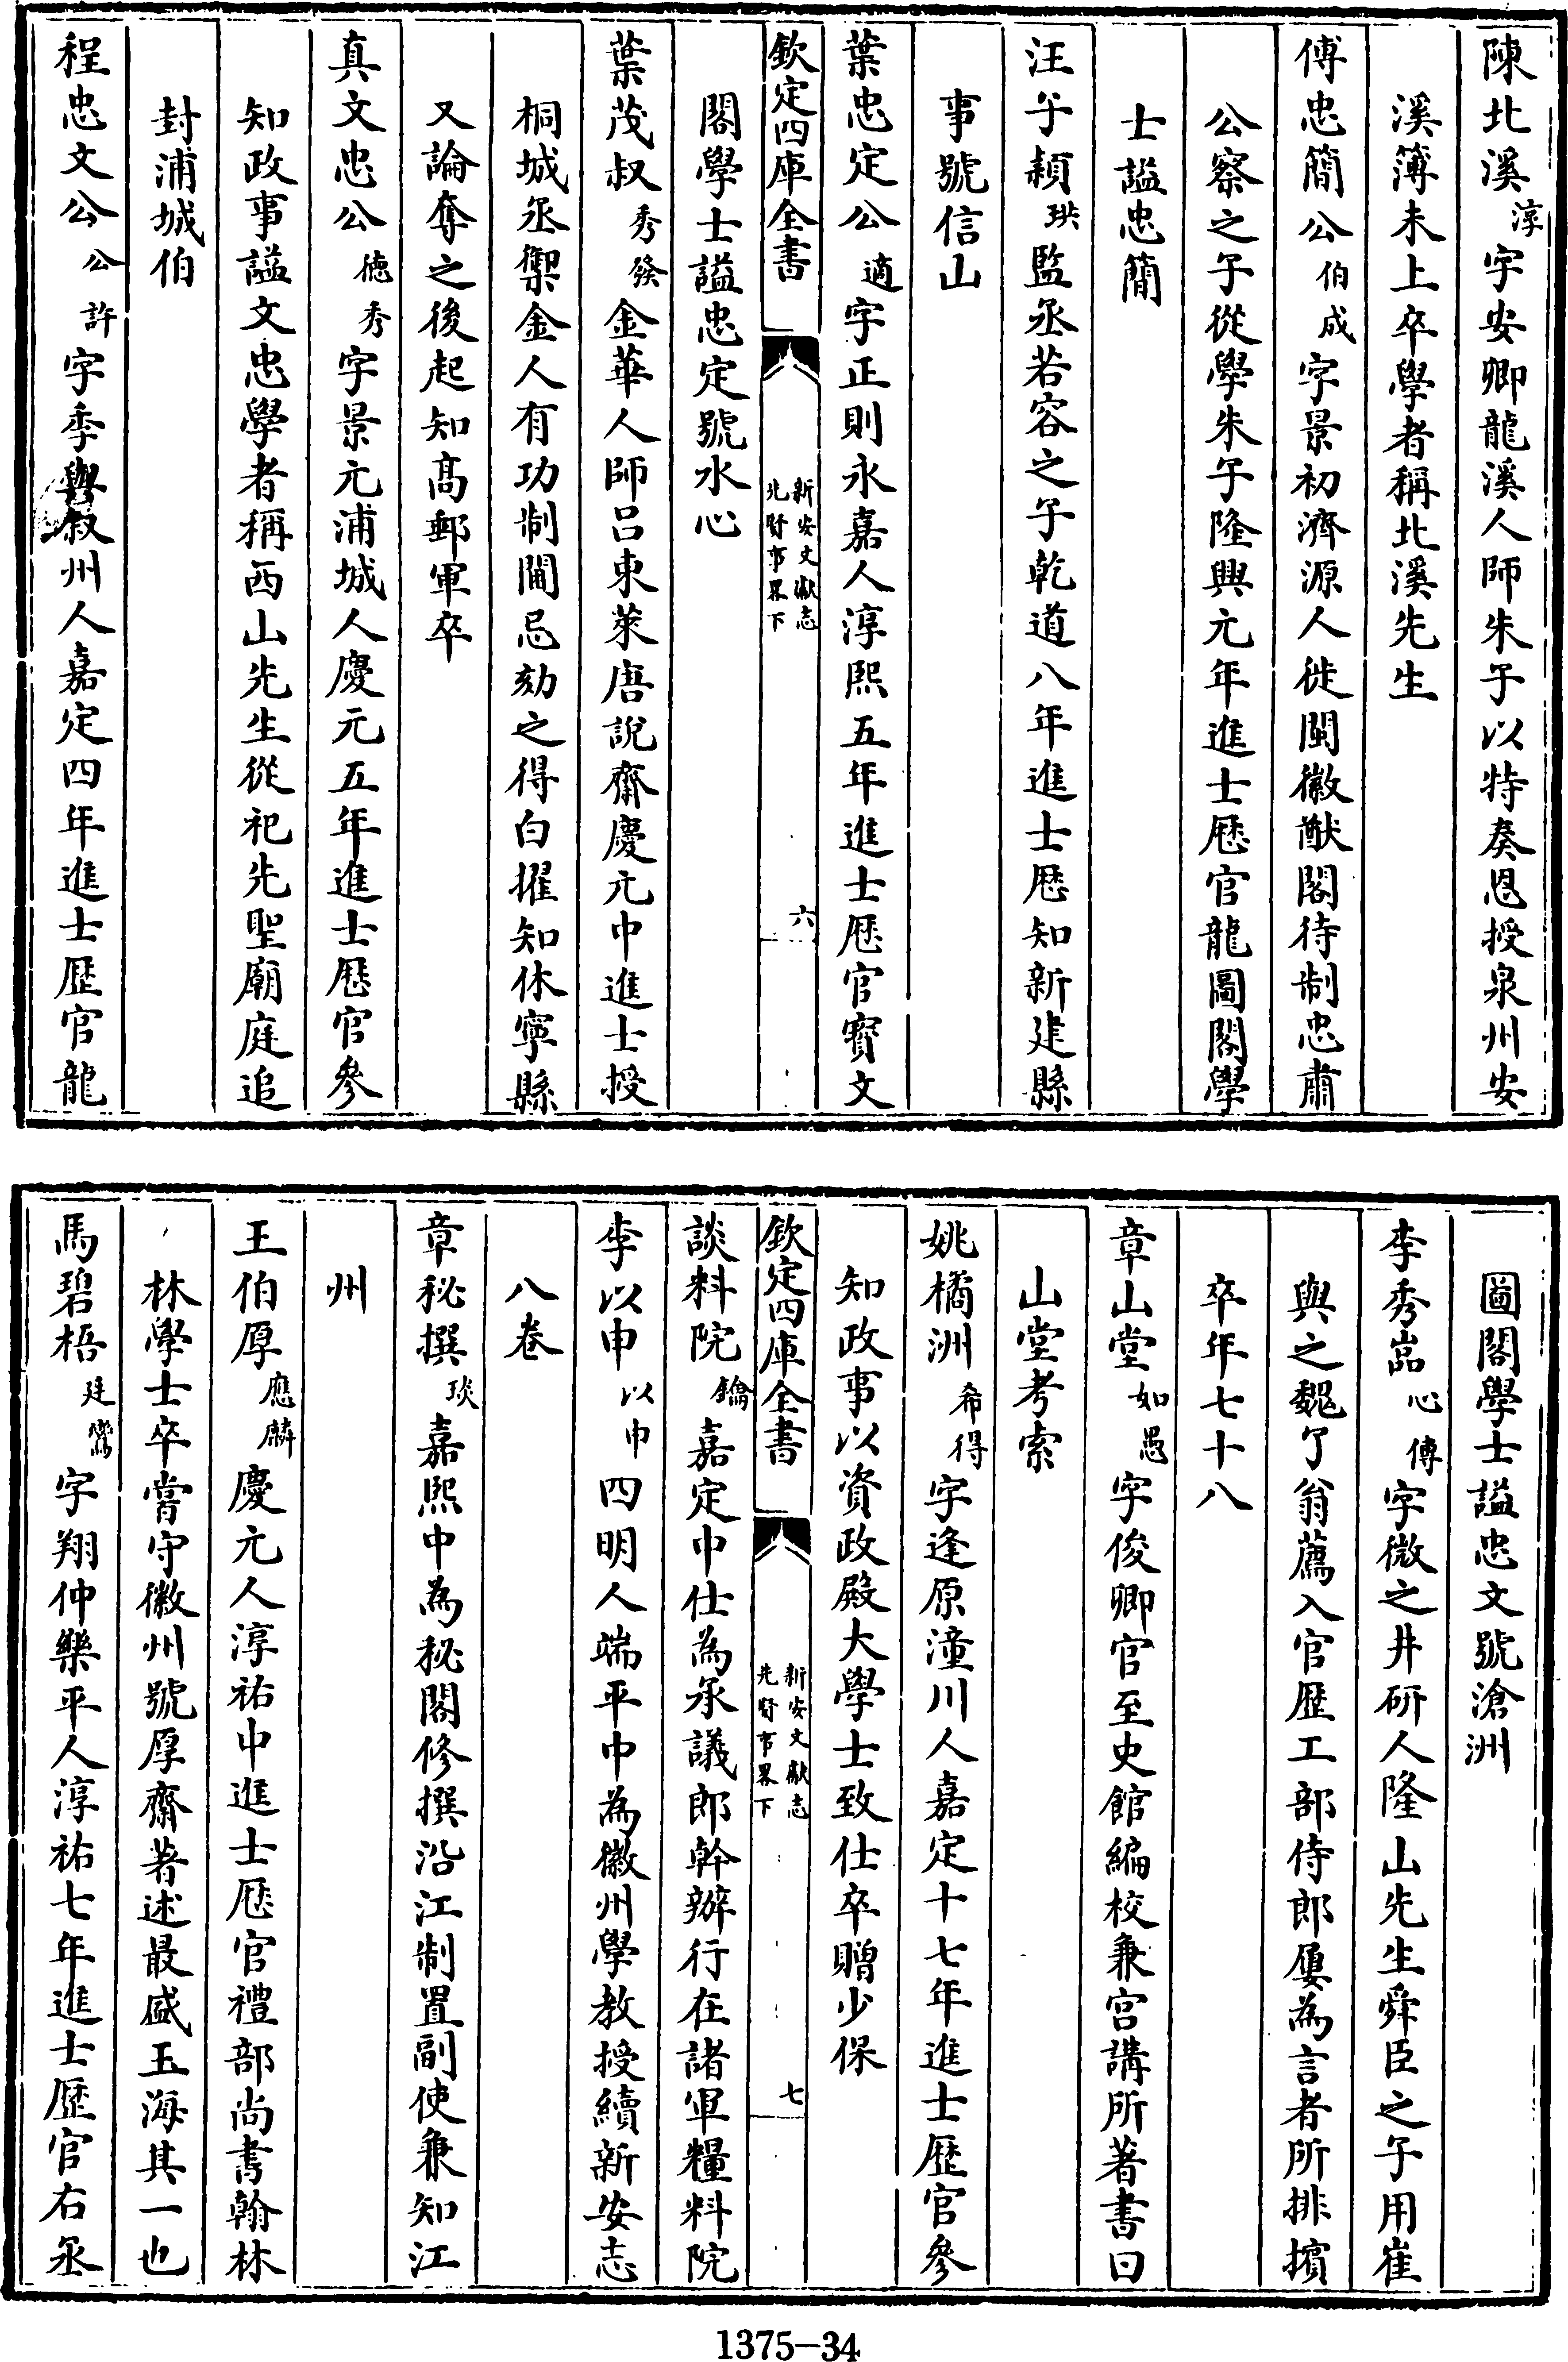 陳北溪淳字安卿龍溪人師朱子以特奏恩授泉州安
溪簿未上卒學者稱北溪先生
傅忠簡公伯成字景初濟源人徙閩徽猷閣待制忠肅
公察之子從學朱子隆興元年進士厯官龍圖閣學
士諡忠簡
汪子穎珙監丞若容之子乾道八年進士厯知新建縣
事號信山
葉忠定公適字正則永嘉人淳熙五年進士厯官寶文
欽定四庫全書
新安文獻志
先賢事畧下
六
閣學士諡忠定號水心
葉茂叔秀發金華人師呂東萊唐說齋慶元中進士授
桐城丞禦金人有功制閫忌劾之得白擢知休寧縣
又論奪之後起知高郵軍卒
真文忠公德秀字景元浦城人慶元五年進士厯官參
知政事諡文忠學者稱西山先生從祀先聖廟庭追
封浦城伯
程忠文公公許字季與叙州人嘉定四年進士歷官龍
圖閣學士諡忠文號滄洲
李秀嵓心傳字微之井研人隆山先生舜臣之子用崔
與之魏了翁薦入官歷工部侍郎屢為言者所排擯
卒年七十八
章山堂如愚字俊卿官至史館編校兼宫講所著書曰
山堂考索
姚橘洲希得字逢原潼川人嘉定十七年進士歷官參
知政事以資政殿大學士致仕卒贈少保
欽定四庫全書
新安文獻志
先賢事畧下
七
談料院鑰嘉定中仕為承議郎幹辦行在諸軍糧料院
李以申以申四明人端平中為徽州學教授續新安志
八卷
章秘撰琰嘉熙中為秘閣修撰沿江制置副使兼知江
州
王伯厚應麟慶元人淳祐中進士厯官禮部尚書翰林
林學士卒嘗守徽州號厚齋著述最盛玉海其一也
馬碧梧廷鸞字翔仲樂平人淳祐七年進士歷官右丞
1375-34